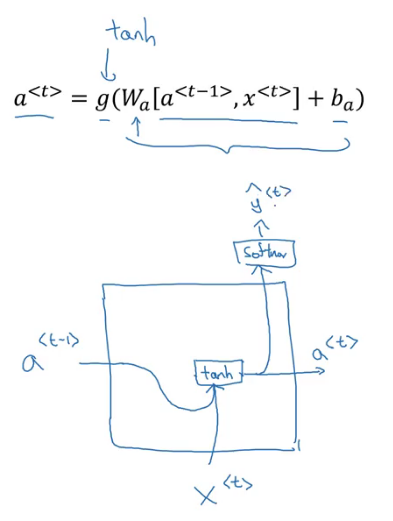 tanh
a<t> = g(Wₐ[a<t-1>, x<t>] + bₐ)
ŷ<t>
softmax
a<t-1>
tanh
a<t>
x<t>